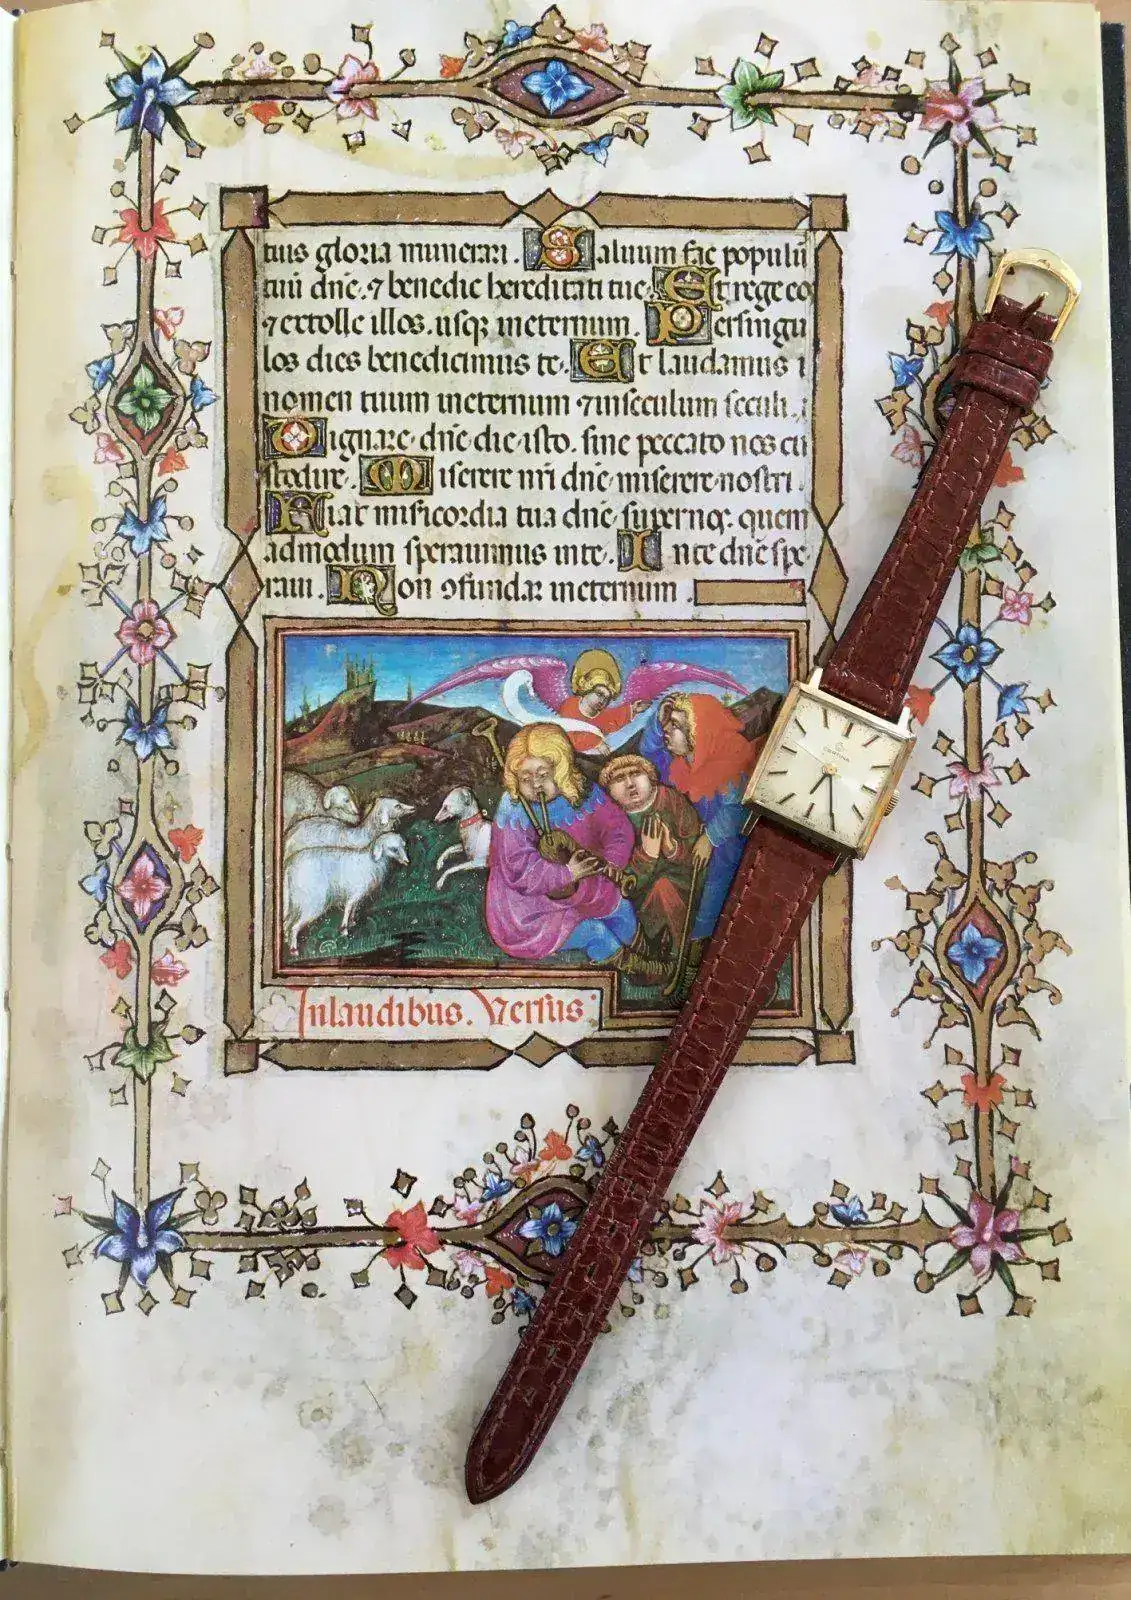 tuis gloria munerari. Saluum fac populũ
tuũ dñe. ⁊ benedic hereditati tue. Et rege eo
⁊ extolle illos. usqꝫ ineternum. Persingu
los dies benedicimus te. Et laudamus
nomen tuum ineternum ⁊ inseculum seculi.
Dignare dñe die isto. sine peccato nos cu
stodire. Miserere nri dñe miserere nostri.
Fiat misericordia tua dñe super nos. quem
admodum sperauimus inte. Inte dñe spe
raui. Non ꝯfundar ineternum.
Inlaudibus. Versus:
CERTINA